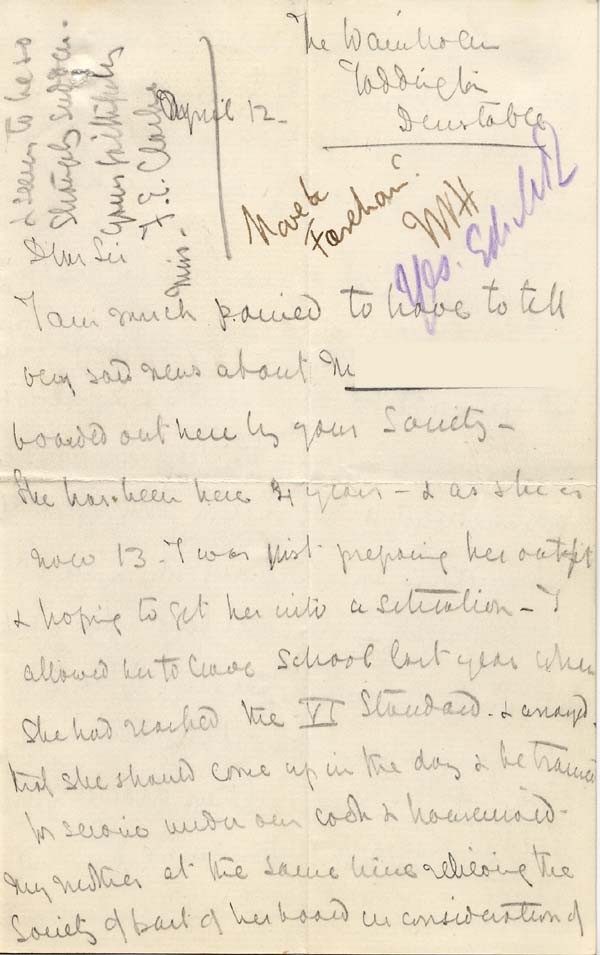 The Wainholm
Toddington
Dunstable
April 12 -
Dear Sir
I am much pained to have to tell
very sad news about M
boarded out here by your Society -
She has been here 4 years - & as she is
now 13 - I was just preparing her outfit
& hoping to get her into a situation - I
allowed her to leave School last year when
She had reached the VI Standard. & arranged
that she should come up in the day & be trained
for service under our cook & housemaid -
My mother at the same time relieving the
Society of part of her board in consideration of
& seems to be so
sharply sudden -
Yours faithfully
F. E. Clarke
Miss.
Move to
Fareham.
WH
Yes.